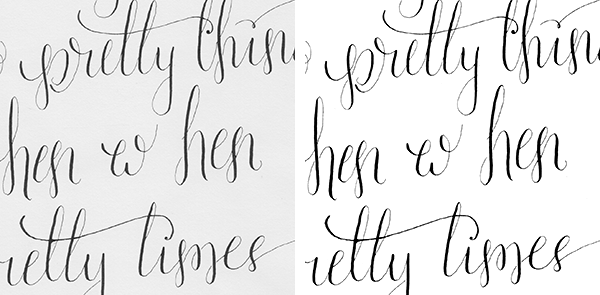 pretty thin
hen w hen
retty times
pretty thin
hen w hen
retty times